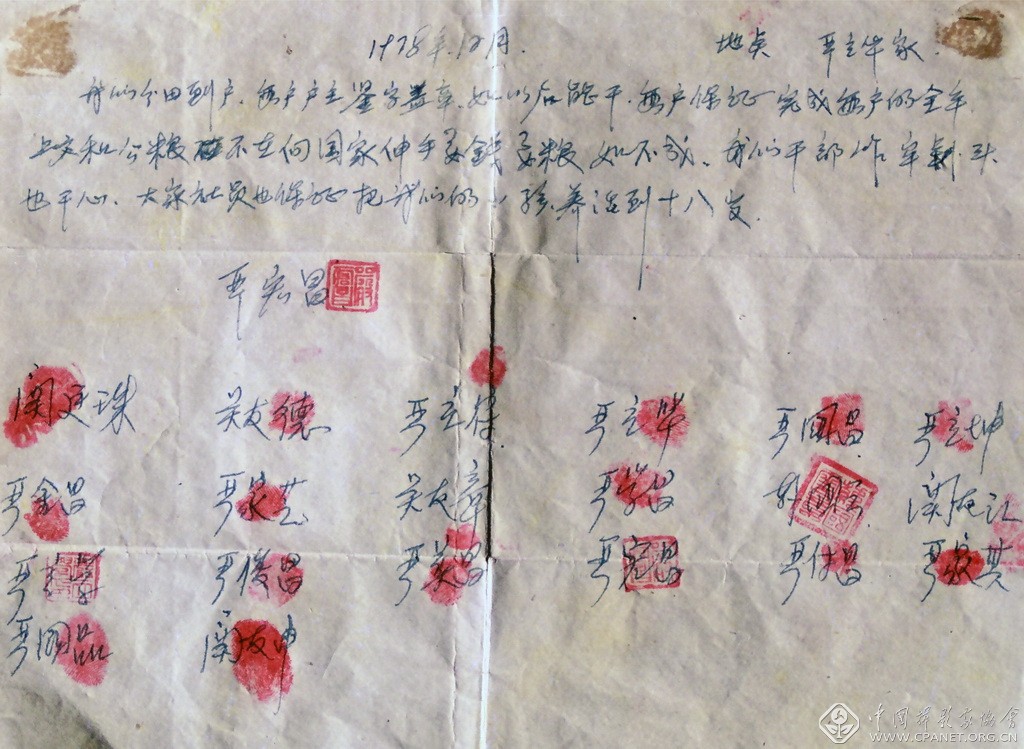 1978年12月. 地点 严立华家
我们分田到户,每户户主签字盖章,如以后能干,每户保证完成每户的全年
上交和公粮 不在向国家伸手要钱要粮,如不成,我们干部作牢刹头
也干心,大家社员也保证把我们的小孩养活到十八岁.
严宏昌
关廷珠 关友德 严立符 严立华 严国昌 严立坤
严金昌 严家芝 关友章 严学昌 韩国云 关友江
严立学 严俊昌 严美昌 严宏昌 严付昌 严家其
严国品 关友申
中国摄影家协会
WWW.CPANET.ORG.CN